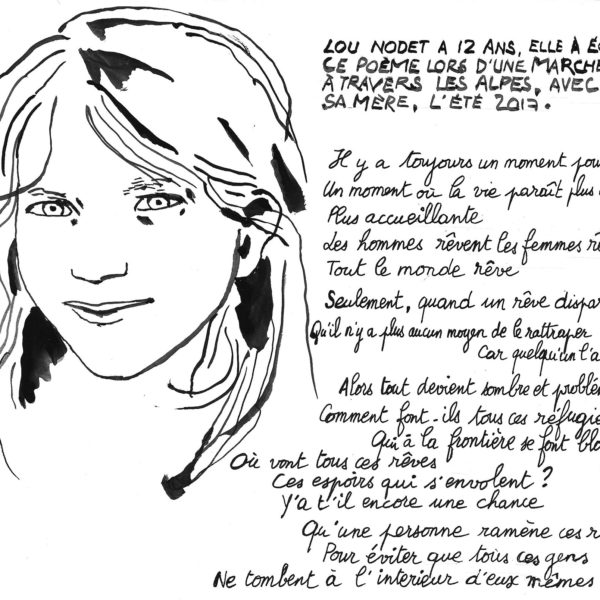 LOU NODET A 12 ANS, ELLE À ÉC
CE POÈME LORS D'UNE MARCHE
À TRAVERS LES ALPES, AVEC
SA MÈRE, L'ÉTÉ 2017.
Il y a toujours un moment pou
Un moment où la vie paraît plus
Plus accueillante
Les hommes rêvent les femmes rê
Tout le monde rêve
Seulement, quand un rêve dispar
Qu'il n'y a plus aucun moyen de le rattraper
Car quelqu'un l'a
Alors tout devient sombre et problé
Comment font-ils tous ces réfugie
Qui à la frontière se font blo
Où vont tous ces rêves
Ces espoirs qui s'envolent ?
Y'a t'il encore une chance
Qu'une personne ramène ces r
Pour éviter que tous ces gens
Ne tombent à l'interieur d'eux mêmes